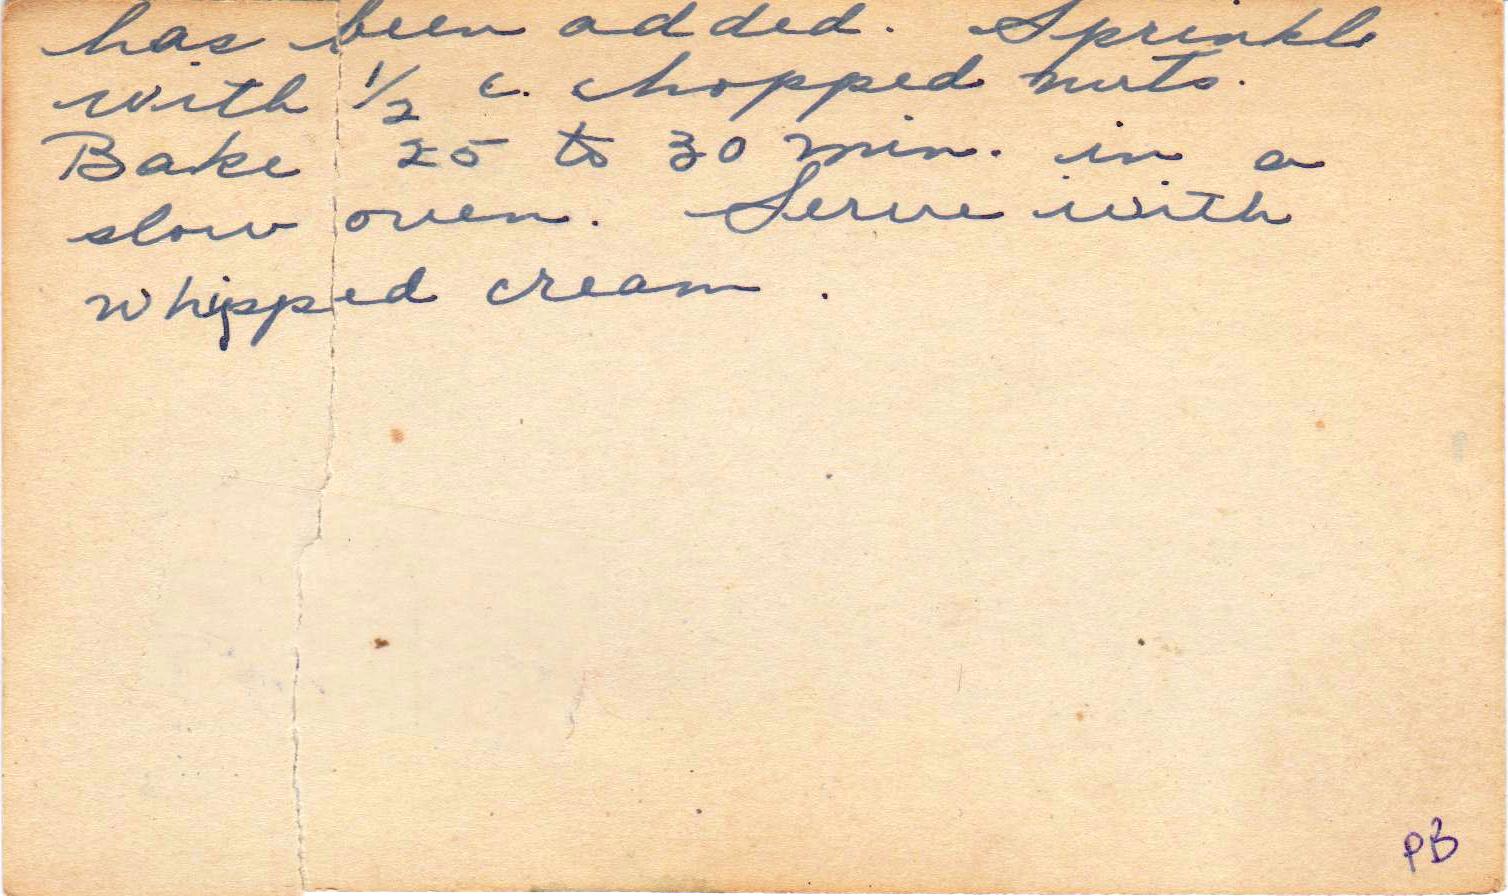 has been added. Sprinkle
with 1/2 c. chopped nuts.
Bake 25 to 30 min. in a
slow oven. Serve with
whipped cream.
PB